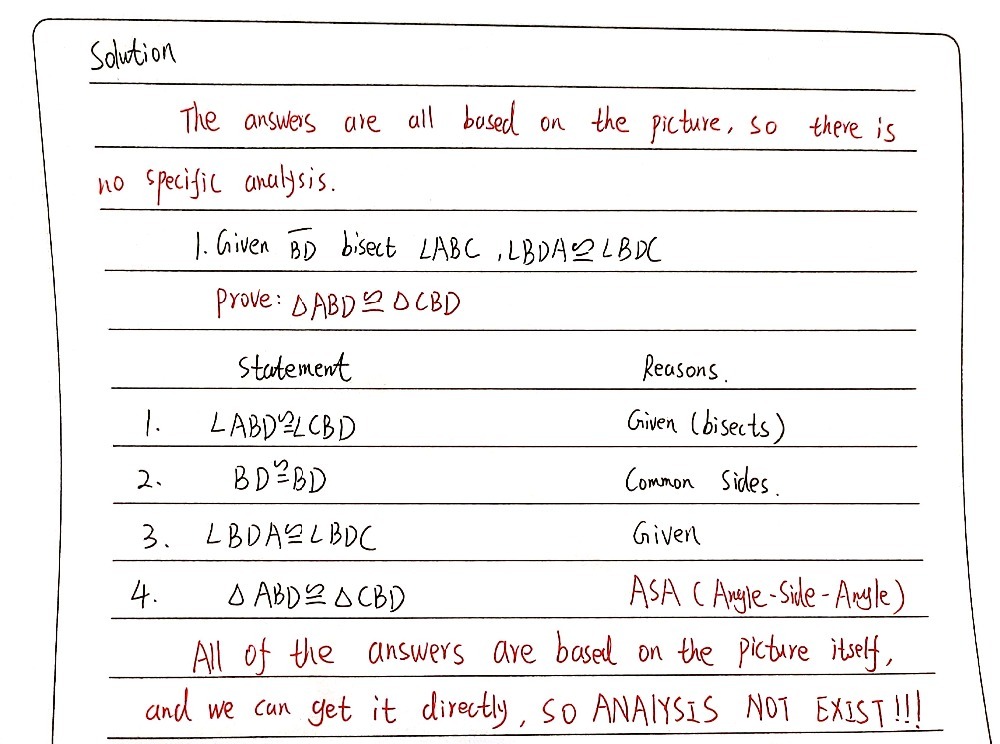 Solution
The answers are all based on the picture, so there is
no specific analysis.
1. Given B̅D̅ bisect ∠ABC , ∠BDA≌∠BDC
Prove: △ABD≌△CBD
Statement Reasons.
1. ∠ABD≌∠CBD Given (bisects)
2. BD≌BD Common Sides.
3. ∠BDA≌∠BDC Given
4. △ABD≌△CBD ASA (Angle-Side-Angle)
All of the answers are based on the picture itself,
and we can get it directly, so ANALYSIS NOT EXIST!!!